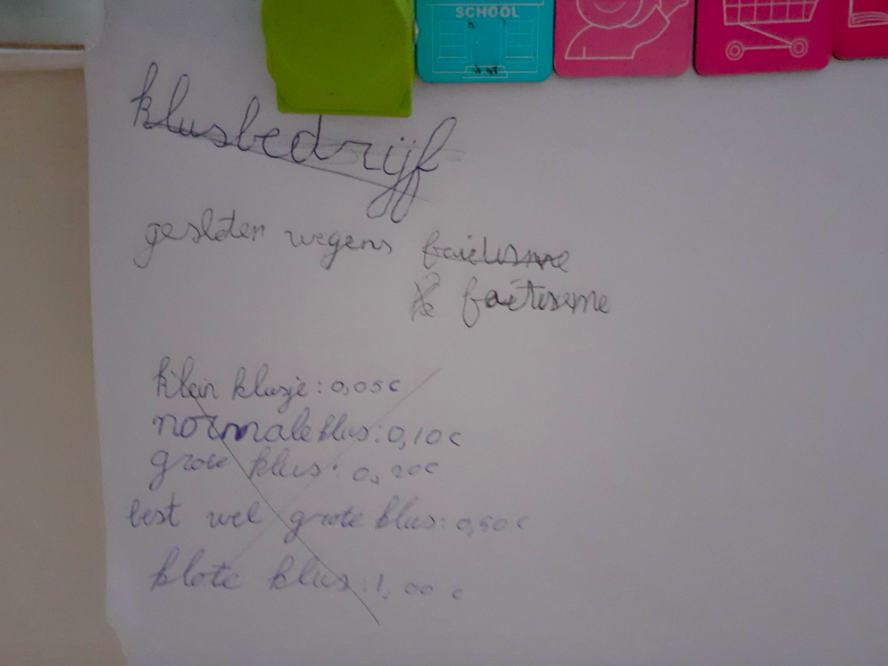 SCHOOL
klusbedrijf
gesloten wegens
faetisme
klein klusje: 0,05c
normale klus: 0,10c
grote klus: 0,20c
best wel grote klus: 0,50c
klote klus: 1,00 c